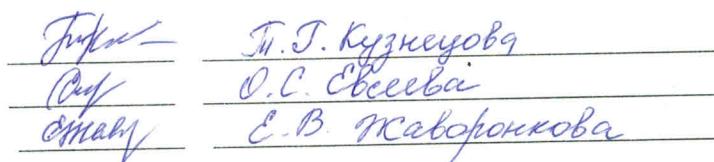 Т.Г. Кузнецова
О.С. Евсеева
Е.В. Жаворонкова